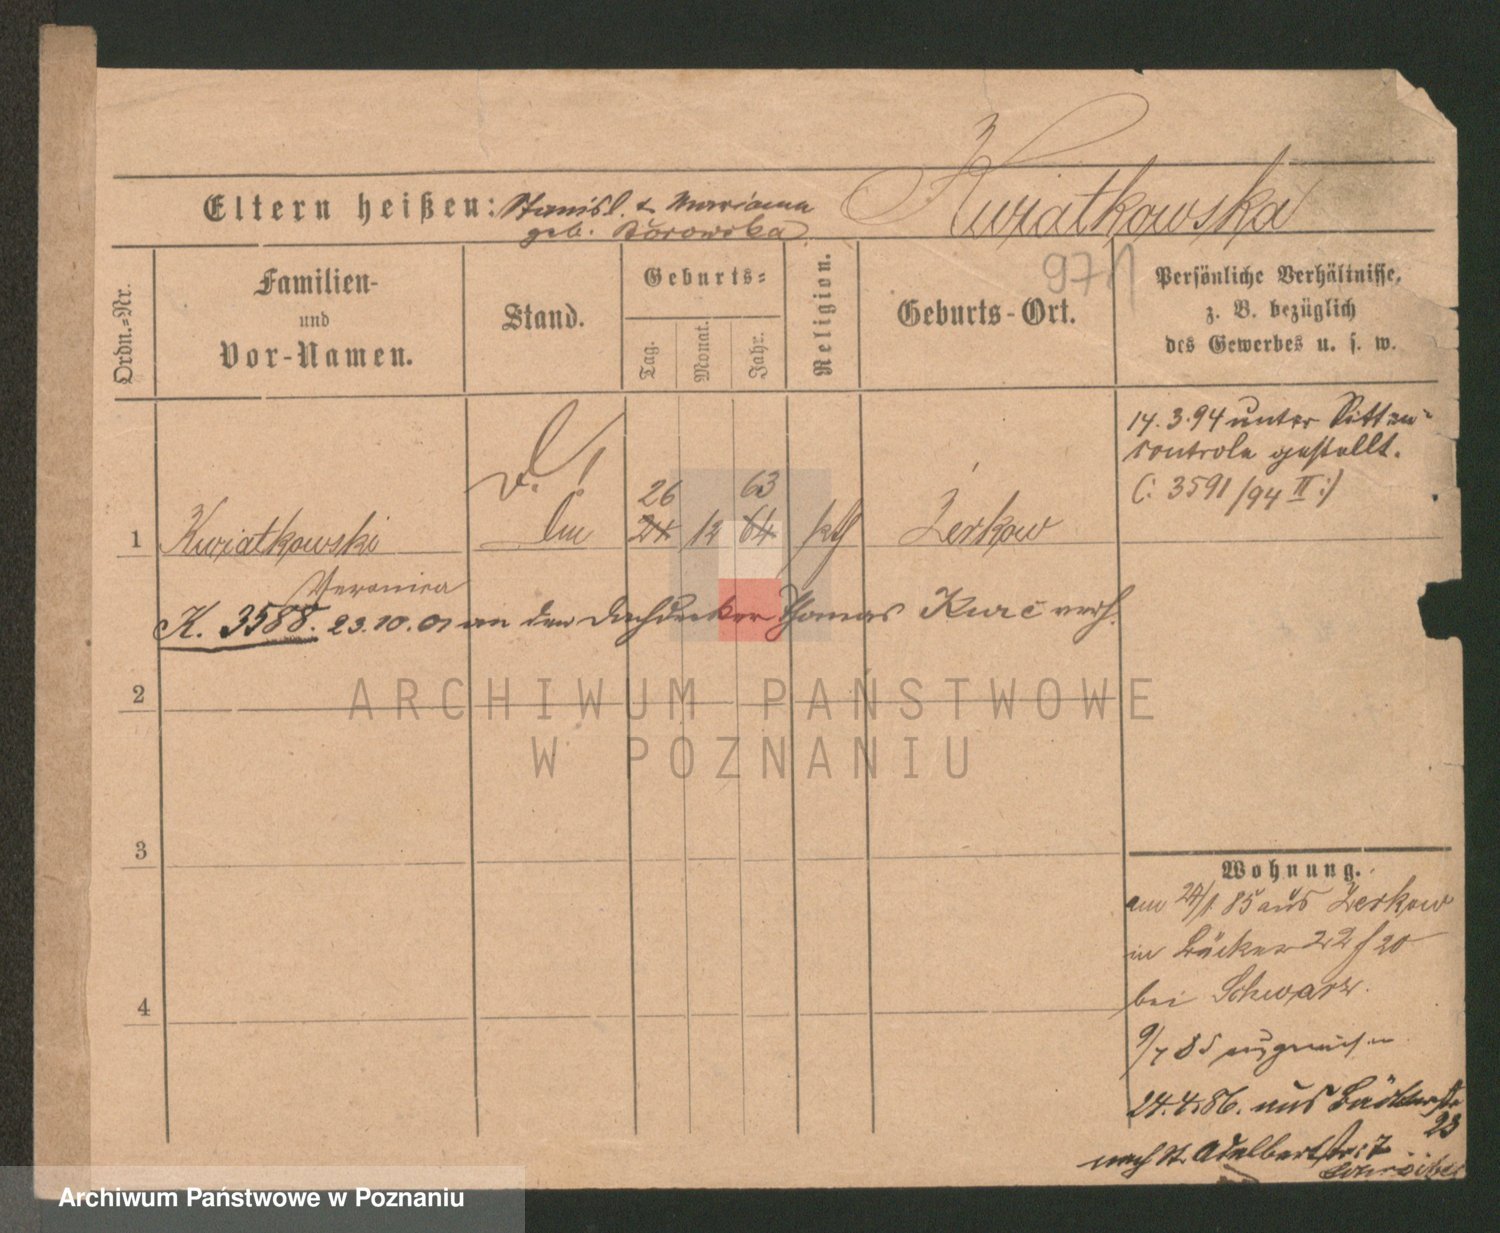 Kwiatkowska
Eltern heißen: Stanisl. & Marianna
geb. Borowska
9711
Ordn.-Nr.
Familien-
und
Vor-Namen.
Stand.
Geburts-
Tag.
Monat.
Jahr.
Religion.
Geburts-Ort.
Persönliche Verhältnisse,
z. B. bezüglich
des Gewerbes u. s. w.
14.3.94 unter Sitten-
controle gestellt.
(: 3591/94 II :)
26 63
1 Kwiatkowski 24 12 64 kth Zerkow
Veronica
K. 3588. 23.10.01 an den Dachdecker Thomas Kurc verh.
2
3
4
Wohnung.
am 24/1 85 aus Zerkow
in Bäcker 22 f 20
bei Schwarz.
9/7 85
24.4.86. aus Bäckerstr
23
nach St. Adalbertstr: 7
ARCHIWUM PAŃSTWOWE
W POZNANIU
Archiwum Państwowe w Poznaniu